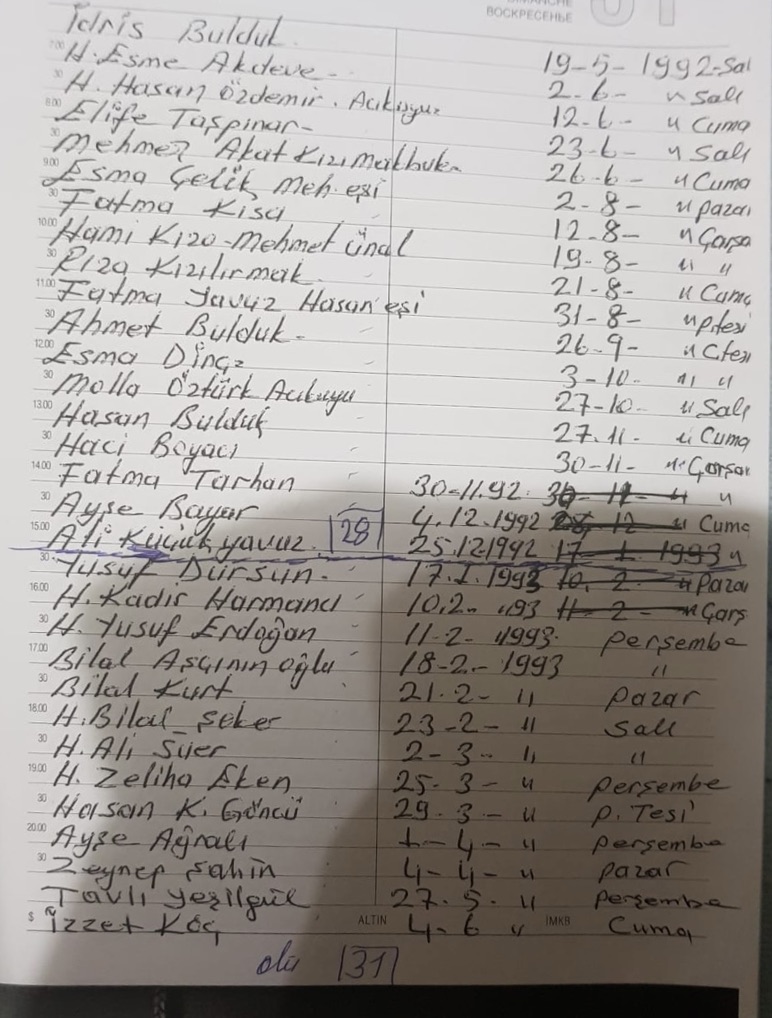 ВОСКРЕСЕНЬЕ
İdris Bulduk
7.00 H. Esme Akdeve - 19-5-1992-Salı
30 H. Hasan Özdemir. Acıkuyu 2-6- " Salı
8.00 Elife Taşpınar- 12-6- " Cuma
30 Mehmet Akat 23-6- " Salı
9.00 Esma Çelik Meh. eşi 26-6- " Cuma
30 Fatma Kısa 2-8- " Pazar
10.00 Hami Kızo-Mehmet Ünal 12-8- " Çarşa
30 Rıza Kızılırmak 19-8- " "
11.00 Fatma Yavuz Hasan eşi 21-8- " Cuma
30 Ahmet Bulduk- 31-8- " p.tesi
12.00 Esma Dinçz 26-9- " Ctesi
30 Molla Öztürk Acıkuyu 3-10- " "
13.00 Hasan Bulduk 27-10- " Salı
30 Haci Boyacı 27.11- " Cuma
14.00 Fatma Tarhan 30-11- " Çarşam
30 Ayşe Bayar 30-11.92. 30-11- " "
15.00 Ali Küçükyavuz. 28 4.12.1992 12 " Cuma
25.12.1992 17-1-1993 "
30 Yusuf Dursun. 17.1.1993 10. 2- " Pazar
16.00 H. Kadir Harmancı 10.2- "93 11-2- " Çarş
30 H. Yusuf Erdoğan 11-2- 1993. perşembe
17.00 Bilal Aşçının oğlu 18-2.- 1993 "
30 Bilal Kurt 21.2- " Pazar
18.00 H. Bilal şeker 23-2- " Salı
30 H. Ali Süer 2-3- " "
19.00 H. Zeliha Eken 25-3- " perşembe
30 Hasan K. Göncü 29.3- " P. Tesi
20.00 Ayşe Ağralı 1-4- " perşembe
30 Zeynep şahin 4-4- " Pazar
Tavlı Yeşilgül 27.5. " Perşembe
$ İzzet Koç ALTIN 4-6 " İMKB Cuma
31